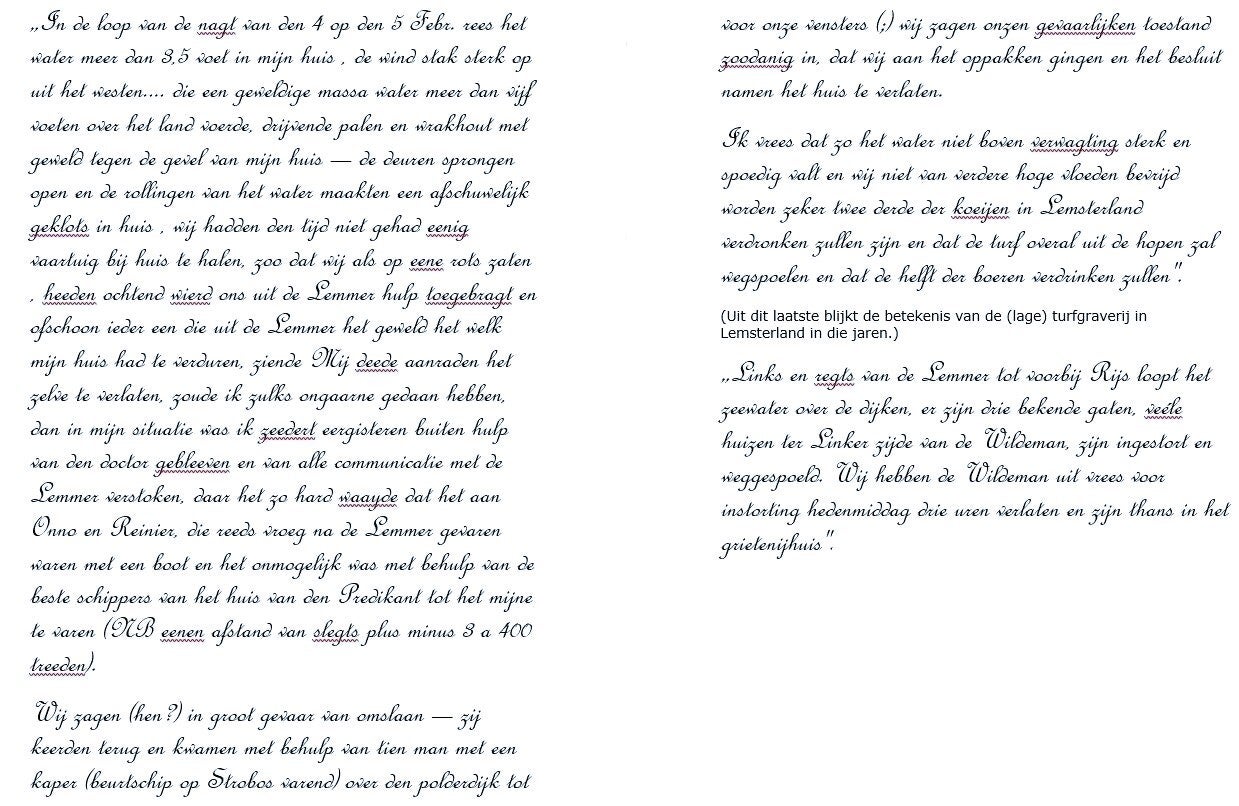 „In de loop van de nagt van den 4 op den 5 Febr. rees het
water meer dan 3,5 voet in mijn huis , de wind stak sterk op
uit het westen.... die een geweldige massa water meer dan vijf
voeten over het land voerde, drijvende palen en wrakhout met
geweld tegen de gevel van mijn huis — de deuren sprongen
open en de rollingen van het water maakten een afschuwelijk
geklots in huis , wij hadden den tijd niet gehad eenig
vaartuig bij huis te halen, zoo dat wij als op eene rots zaten
, heeden ochtend wierd ons uit de Lemmer hulp toegebragt en
ofschoon ieder een die uit de Lemmer het geweld het welk
mijn huis had te verduren, ziende Mij deede aanraden het
zelve te verlaten, zoude ik zulks ongaarne gedaan hebben,
dan in mijn situatie was ik zeedert eergisteren buiten hulp
van den doctor gebleeven en van alle communicatie met de
Lemmer verstoken, daar het zo hard waayde dat het aan
Onno en Reinier, die reeds vroeg na de Lemmer gevaren
waren met een boot en het onmogelijk was met behulp van de
beste schippers van het huis van den Predikant tot het mijne
te varen (NB eenen afstand van slegts plus minus 3 a 400
treeden).
Wij zagen (hen?) in groot gevaar van omslaan — zij
keerden terug en kwamen met behulp van tien man met een
kaper (beurtschip op Strobos varend) over den polderdijk tot
voor onze vensters (;) wij zagen onzen gevaarlijken toestand
zoodanig in, dat wij aan het oppakken gingen en het besluit
namen het huis te verlaten.
Ik vrees dat zo het water niet boven verwagting sterk en
spoedig valt en wij niet van verdere hoge vloeden bevrijd
worden zeker twee derde der koeijen in Lemsterland
verdronken zullen zijn en dat de turf overal uit de hopen zal
wegspoelen en dat de helft der boeren verdrinken zullen".
(Uit dit laatste blijkt de betekenis van de (lage) turfgraverij in
Lemsterland in die jaren.)
„Links en regts van de Lemmer tot voorbij Rijs loopt het
zeewater over de dijken, er zijn drie bekende gaten, veele
huizen ter Linker zijde van de Wildeman, zijn ingestort en
weggespoeld. Wij hebben de Wildeman uit vrees voor
instorting hedenmiddag drie uren verlaten en zijn thans in het
grietenijhuis".